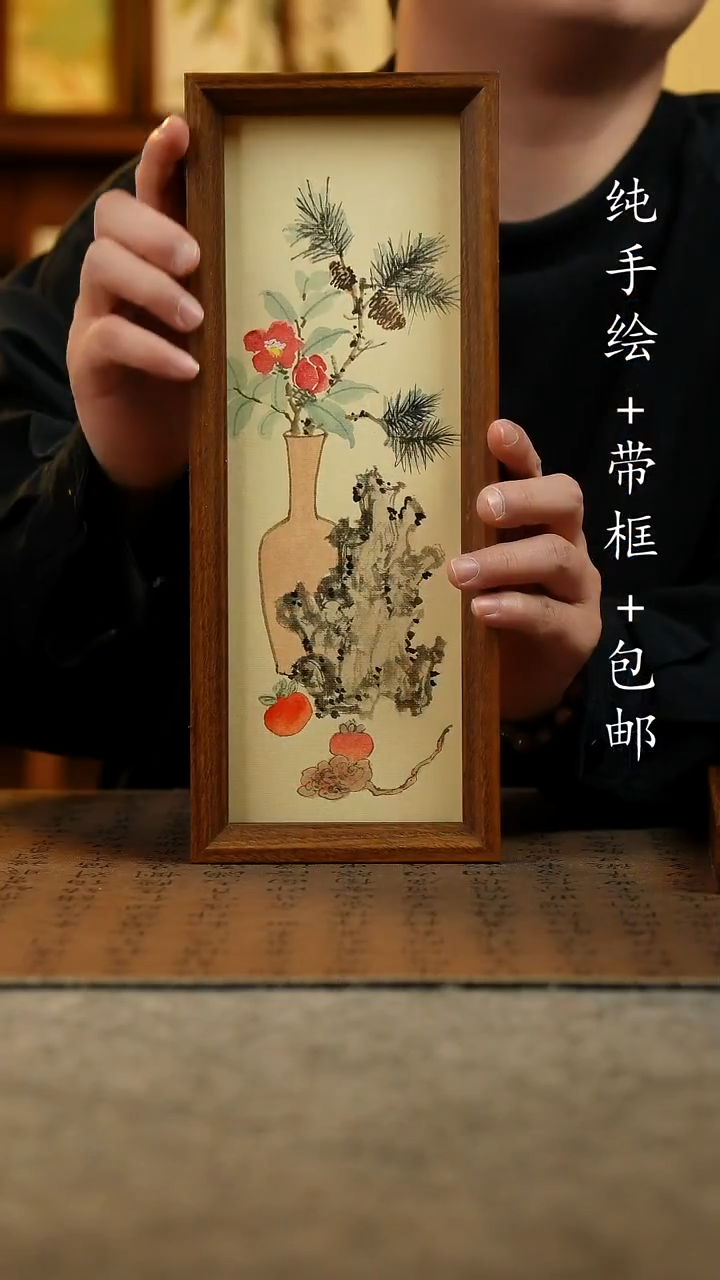 纯手绘+带框+包邮